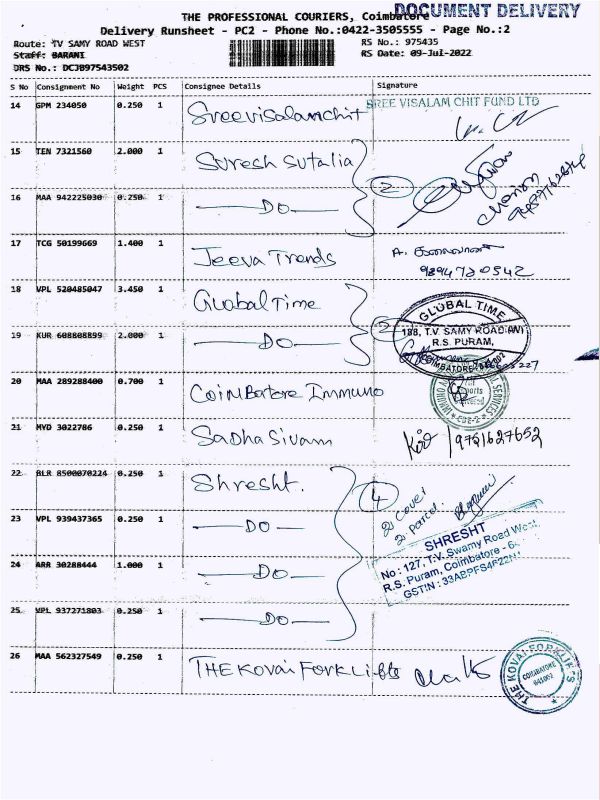 THE PROFESSIONAL COURIERS, Coimbatore
DOCUMENT DELIVERY
Delivery Runsheet - PC2 - Phone No.:0422-3505555 - Page No.:2
Route: TV SAMY ROAD WEST
RS No.: 975435
Staff: BARANI
RS Date: 09-Jul-2022
DRS No.: DCJB97543502
S No Consignment No Weight PCS Consignee Details Signature
14 GPM 234050 0.250 1 Sreevisalamchit
SREE VISALAM CHIT FUND LTD
15 TEN 7321560 2.000 1 Suresh Sutalia
2
16 MAA 942225030 0.250 1 —DO—
17 TCG 50199669 1.400 1 Jeeva Trends
9894720542
18 VPL 520485047 3.450 1 Global Time
2
GLOBAL TIME
188, T.V. SAMY ROAD (W)
R.S. PURAM,
COIMBATORE-641002
19 KUR 608808899 2.000 1 —DO—
20 MAA 289288400 0.700 1 Coimbatore Immuno
21 MYD 3022786 0.250 1 Sadha Sivam
9751627652
22 BLR 8500070224 0.250 1 Shresht.
4
2) cover
2) parcel
23 VPL 939437365 0.250 1 —DO—
SHRESHT
No : 127, T.V. Swamy Road West,
R.S. Puram, Coimbatore -
GSTIN :
24 ARR 30288444 1.000 1 —DO—
25 VPL 937271803 0.250 1 —DO—
26 MAA 562327549 0.250 1 THE KOVAI FORKLIFTS
THE KOVAI FORKLIFTS
COIMBATORE
641002